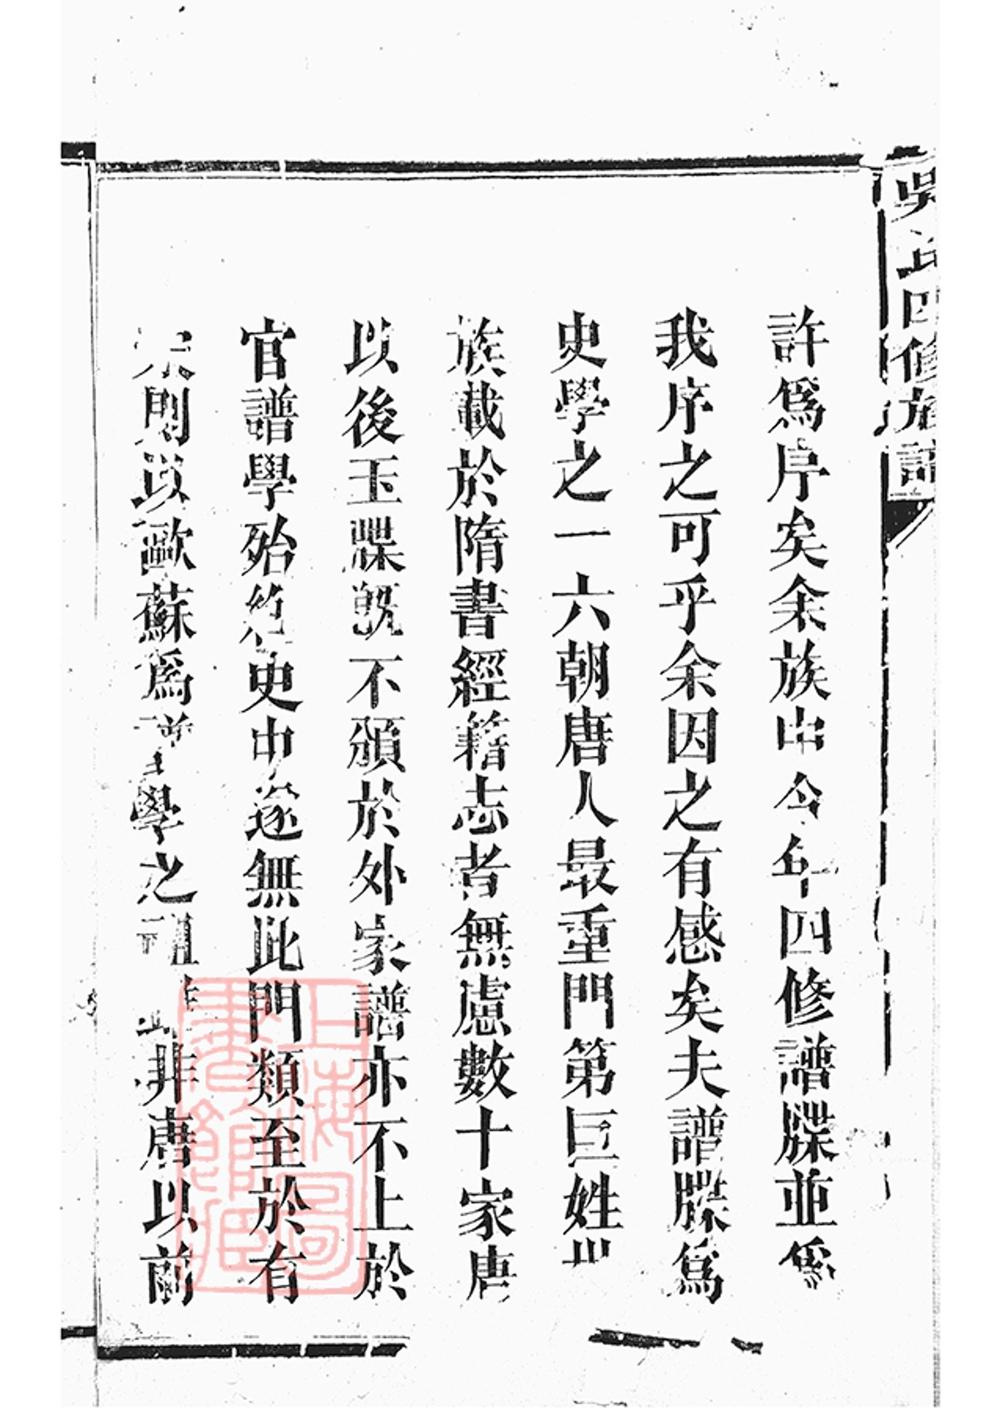 吳氏四修族譜
許爲序矣余族中今年四修譜牒並係
我序之可乎余因之有感矣夫譜牒爲
史學之一六朝唐人最重門第巨姓世
族載於隋書經籍志者無慮數十家唐
以後玉牒既不頒於外家譜亦不上於
官譜學殆絕史中遂無此門類至於有
宋則以歐蘇爲譜學之祖 非唐以前
上海圖書館藏